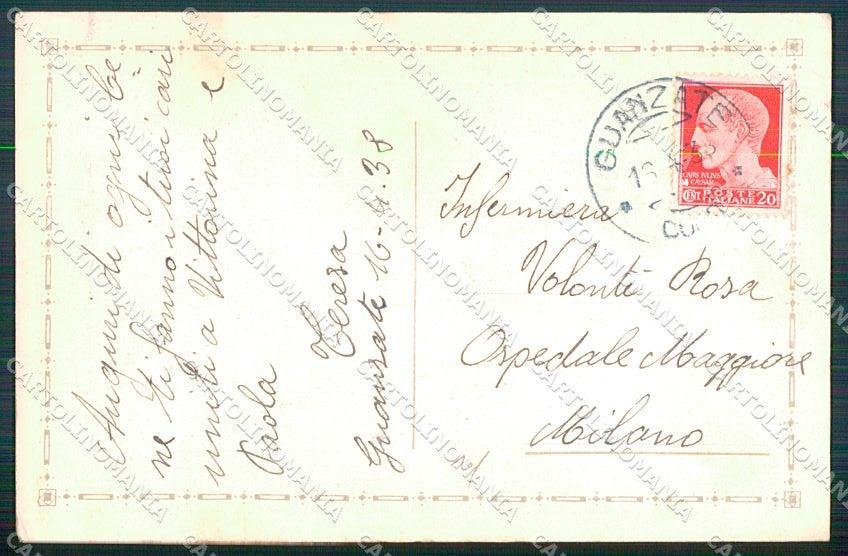 Auguri di ogni be
ne ti fanno i tuoi cari
uniti a Vittorina e
Paola
Teresa
Guanzate 16-4-38
GUANZATE
16
38
CO
CAIVS IVLIVS
CAESAR
CENT. POSTE
ITALIANE 20
Infermiera
Volontè Rosa
Ospedale Maggiore
Milano
CARTOLINOMANIA